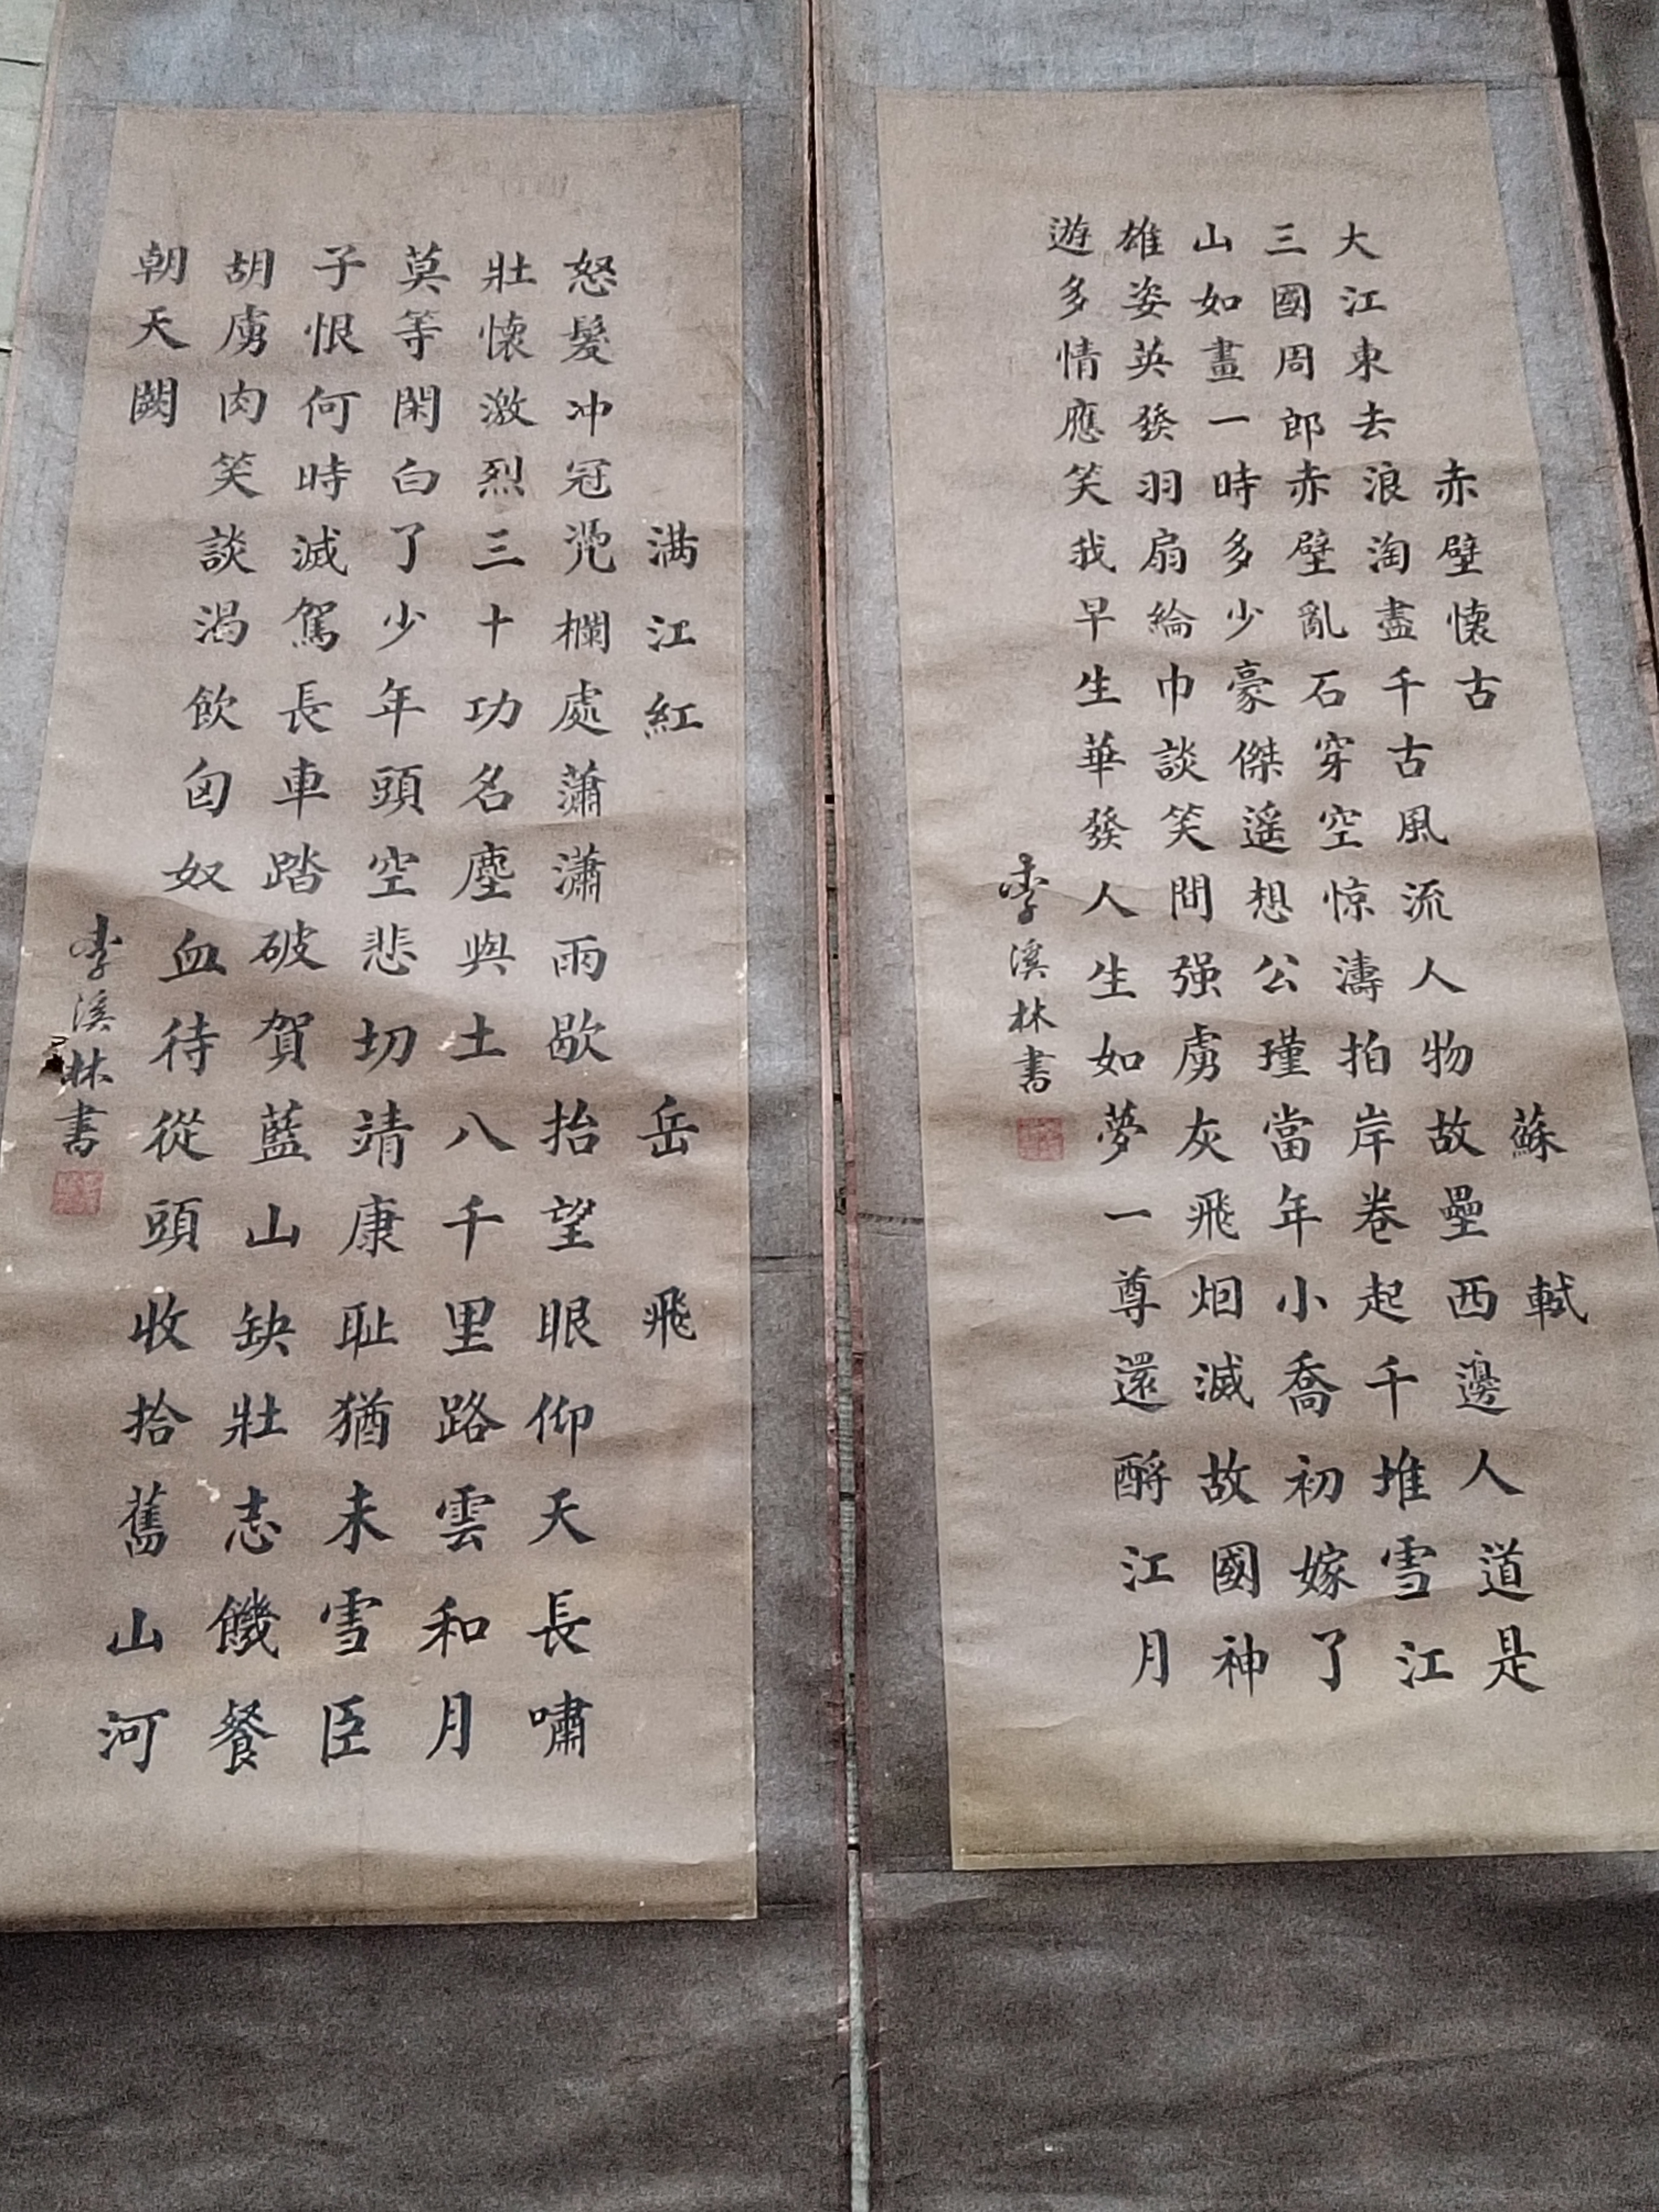 赤壁懷古 蘇軾
大江東去浪淘盡千古風流人物故壘西邊人道是
三國周郎赤壁亂石穿空惊濤拍岸卷起千堆雪江
山如畫一時多少豪傑遥想公瑾當年小喬初嫁了
雄姿英發羽扇綸巾談笑間强虜灰飛烟滅故國神
遊多情應笑我早生華發人生如夢一尊還酹江月
李溪林書
满江紅 岳飛
怒髮冲冠凴欄處蕭瀟雨歇抬望眼仰天長嘯
壯懷激烈三十功名塵與土八千里路雲和月
莫等閑白了少年頭空悲切靖康耻猶未雪臣
子恨何時滅駕長車踏破賀藍山缺壯志饑餐
胡虜肉笑談渴飲匈奴血待從頭收拾舊山河
朝天闕
李溪林書